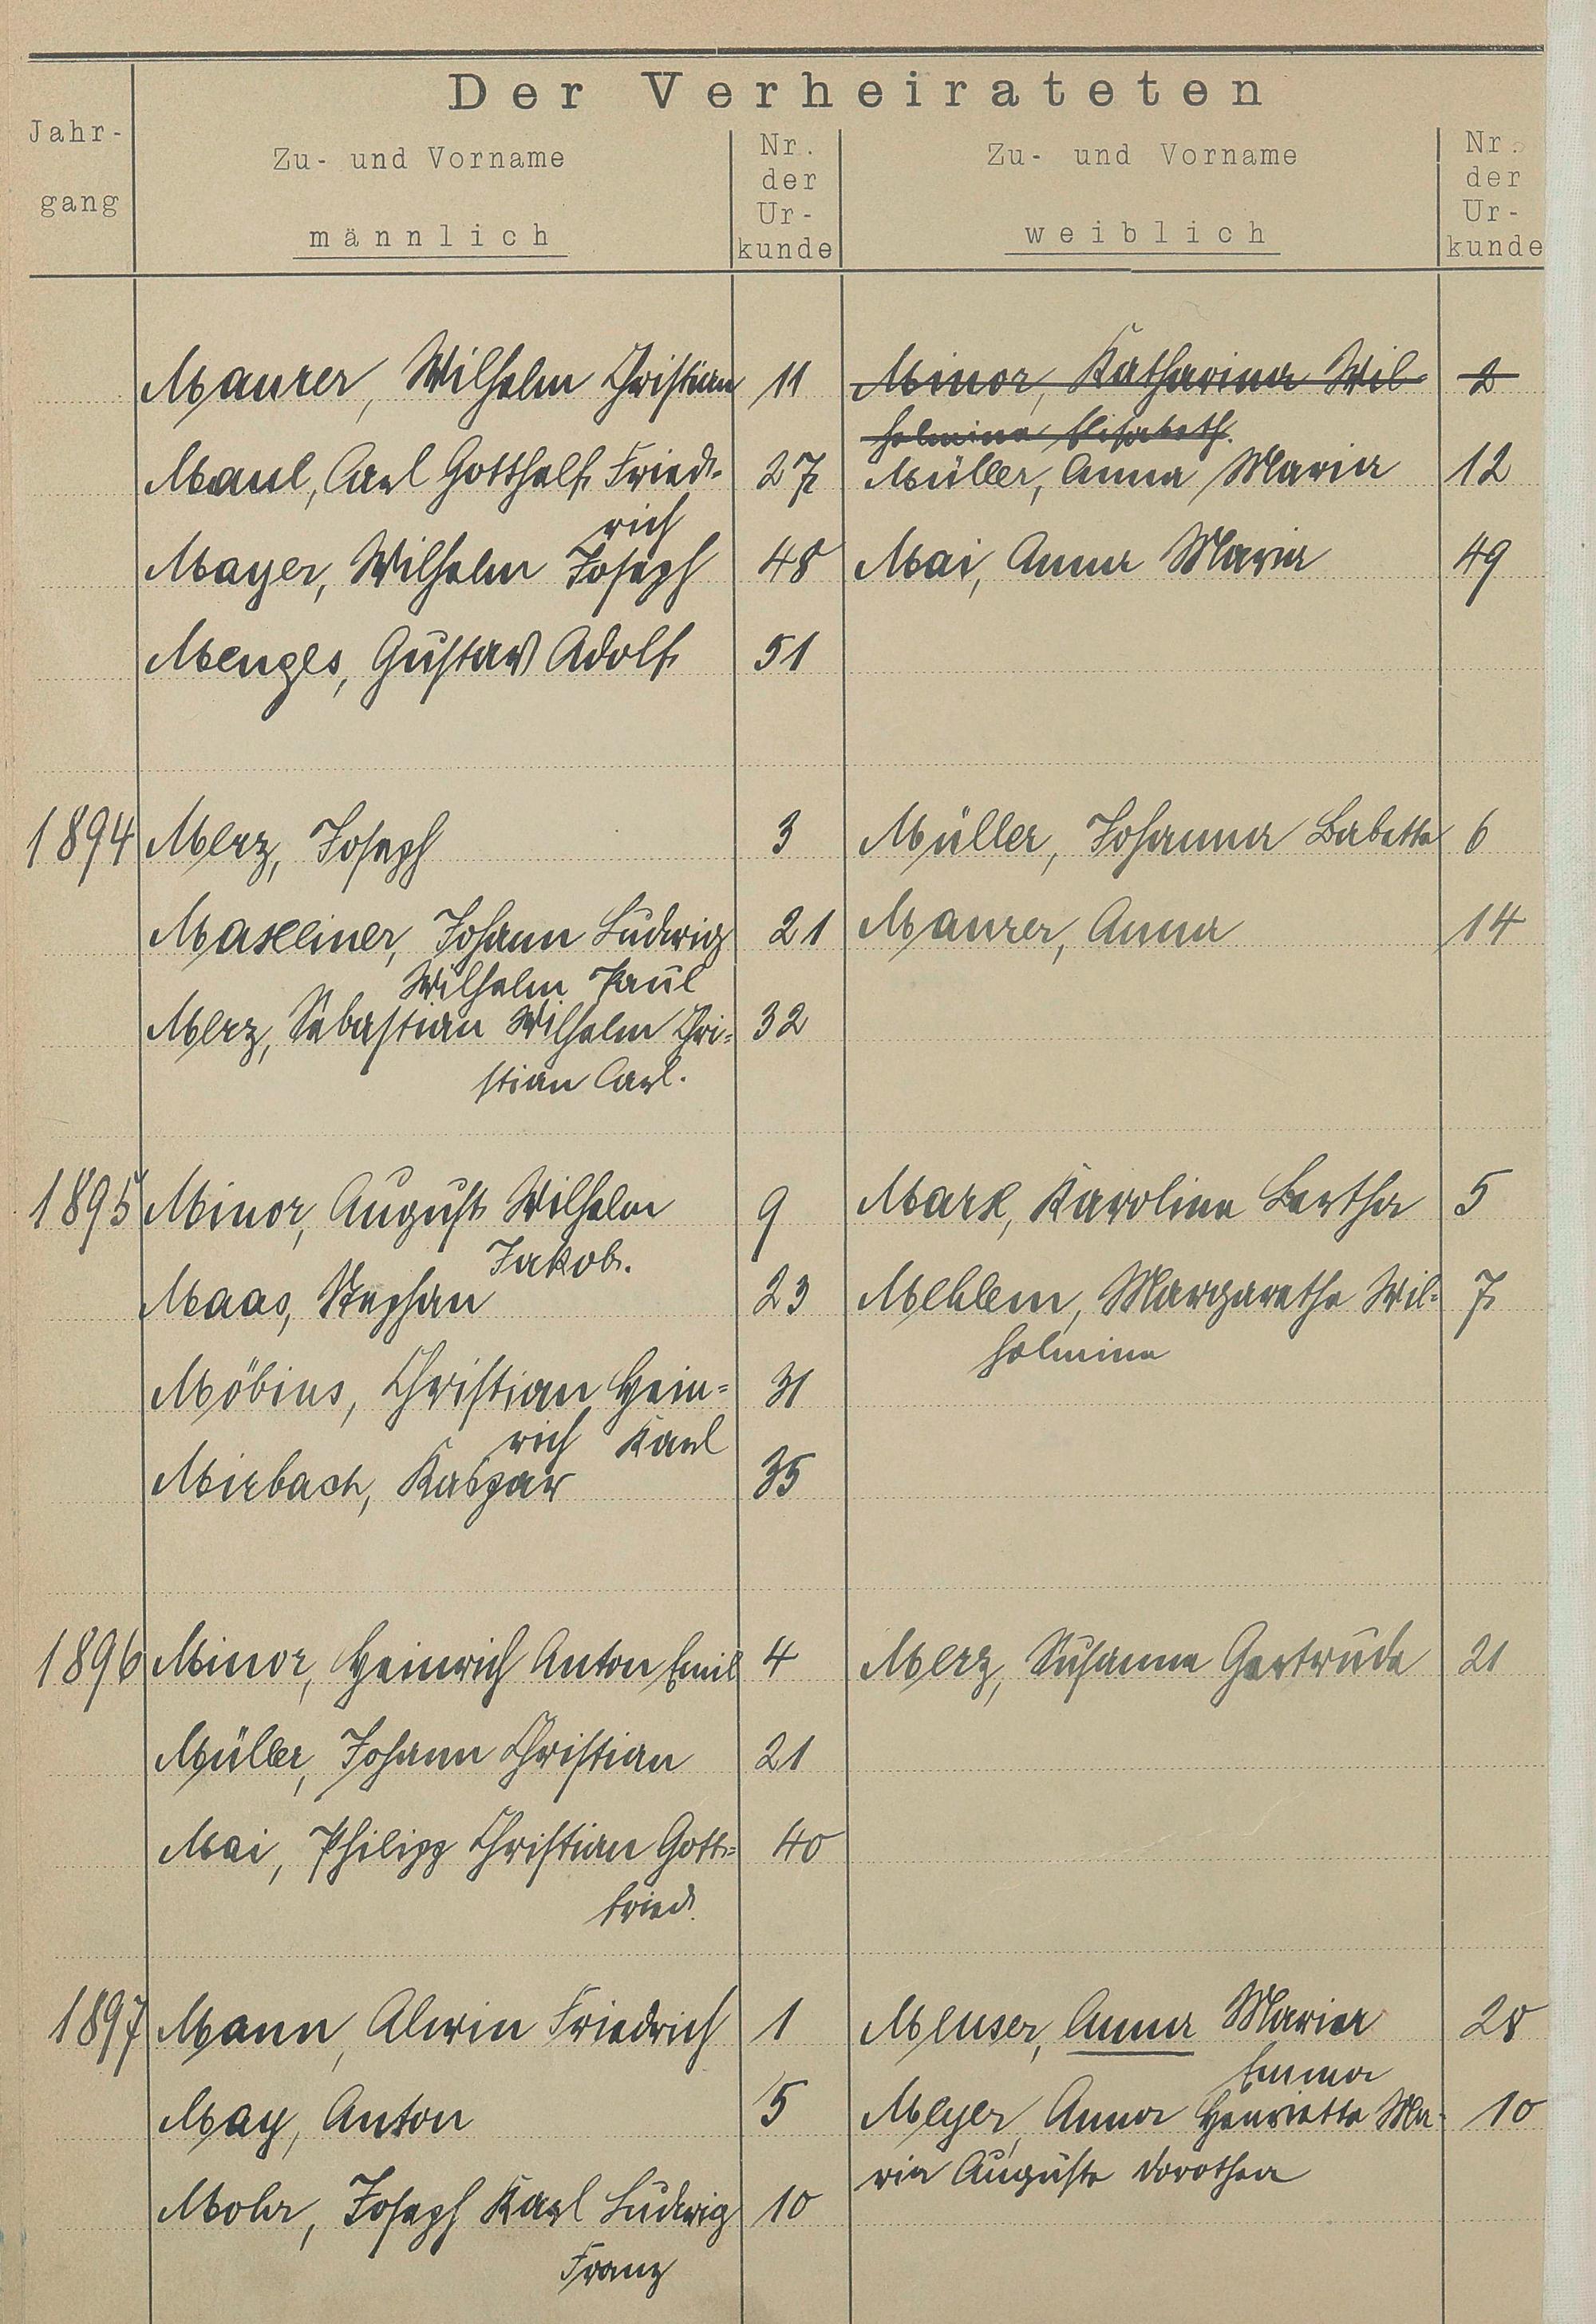 Der Verheirateten
Jahr-
gang
Zu- und Vorname
männlich
Nr.
der
Ur-
kunde
Zu- und Vorname
weiblich
Nr.
der
Ur-
kunde
Maurer, Wilhelm Christian 11 Minor, Katharina Wil- 2
helmine Elisabeth.
Maul, Carl Gotthelf Fried- 27 Müller, Anna Maria 12
rich
Mayer, Wilhelm Joseph 48 Mai, Anna Maria 49
Menges, Gustav Adolf 51
1894 Merz, Joseph 3 Müller, Johanna Babette 6
Maxeiner, Johann Ludwig 21 Maurer, Anna 14
Wilhelm Paul
Merz, Sebastian Wilhelm Chri= 32
stian Carl.
1895 Minor, August Wilhelm 9 Mark, Karoline Bertha 5
Jakob.
Maas, Stephan 23 Mehlem, Margarethe Wil= 7
helmine
Möbius, Christian Hein= 31
rich Karl
Mirbach, Kaspar 35
1896 Minor, Heinrich Anton Emil 4 Merz, Susanne Gertrude 21
Müller, Johann Christian 21
Mai, Philipp Christian Gott= 40
fried.
1897 Mann, Alwin Friedrich 1 Meuser, Anna Maria 28
Emma
May, Anton 5 Meyer, Anna Henriette Ma- 10
ria Auguste Dorothea
Mohr, Joseph Karl Ludwig 10
Franz